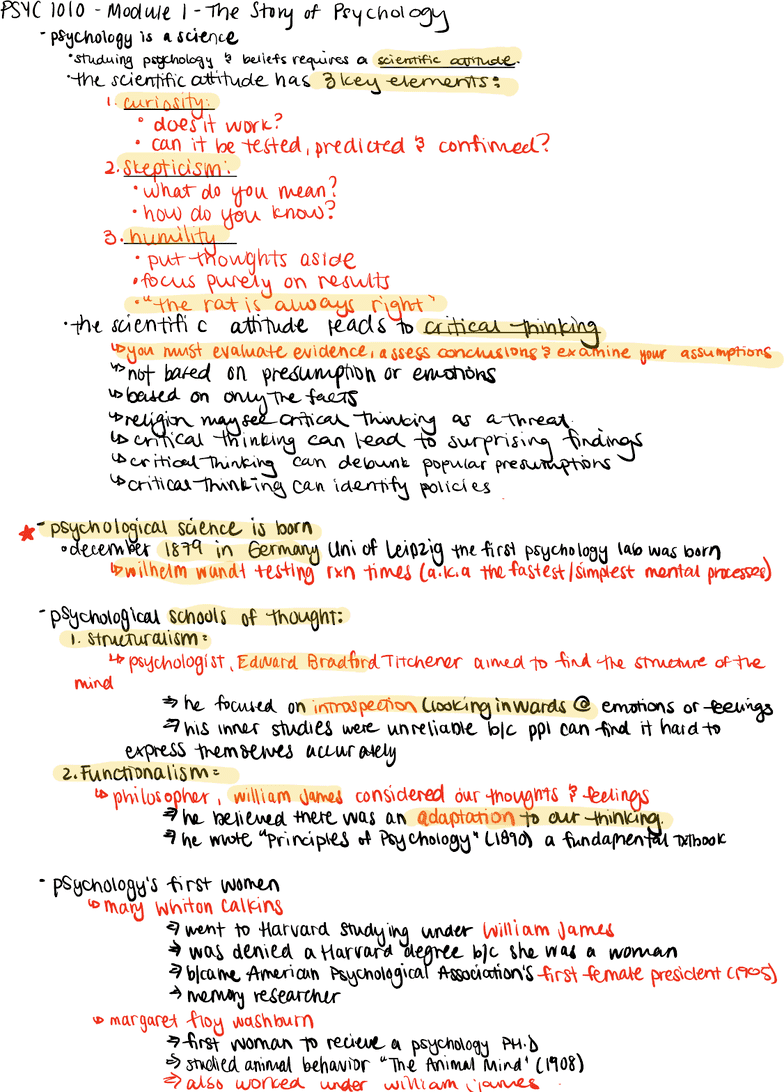 PSYC 1010 - Module 1 - The Story of Psychology
- psychology is a science
• studying psychology & beliefs requires a scientific attitude.
• the scientific attitude has 3 key elements:
1. curiosity:
• does it work?
• can it be tested, predicted & confirmed?
2. Skepticism:
• what do you mean?
• how do you know?
3. humility
• put thoughts aside
• focus purely on results
• "the rat is always right"
• the scientific attitude leads to critical thinking
↳ you must evaluate evidence, assess conclusions & examine your assumptions
↳ not based on presumption or emotions
↳ based on only the facts
↳ religion may see critical thinking as a threat.
↳ critical thinking can lead to surprising findings
↳ critical thinking can debunk popular presumptions
↳ critical thinking can identify policies
★ - psychological science is born
• december 1879 in Germany Uni of Leipzig the first psychology lab was born
↳ wilhelm wundt testing rxn times (a.k.a the fastest/simplest mental processes)
- psychological schools of thought:
1. structuralism:
↳ psychologist, Edward Bradford Titchener aimed to find the structure of the
mind
→ he focused on introspection (looking inwards @ emotions or feelings
→ his inner studies were unreliable b/c ppl can find it hard to
express themselves accurately
2. Functionalism:
↳ philosopher, william james considered our thoughts & feelings
→ he believed there was an adaptation to our thinking.
→ he wrote "Principles of Psychology" (1890) a fundamental textbook
- psychology's first women
↳ mary whiton calkins
→ went to Harvard studying under william James
→ was denied a Harvard degree b/c she was a woman
→ b/came American Psychological Association's first female president (1905)
→ memory researcher
↳ margaret floy washburn
→ first woman to recieve a psychology PH.D
→ studied animal behavior "The Animal Mind" (1908)
→ also worked under william james